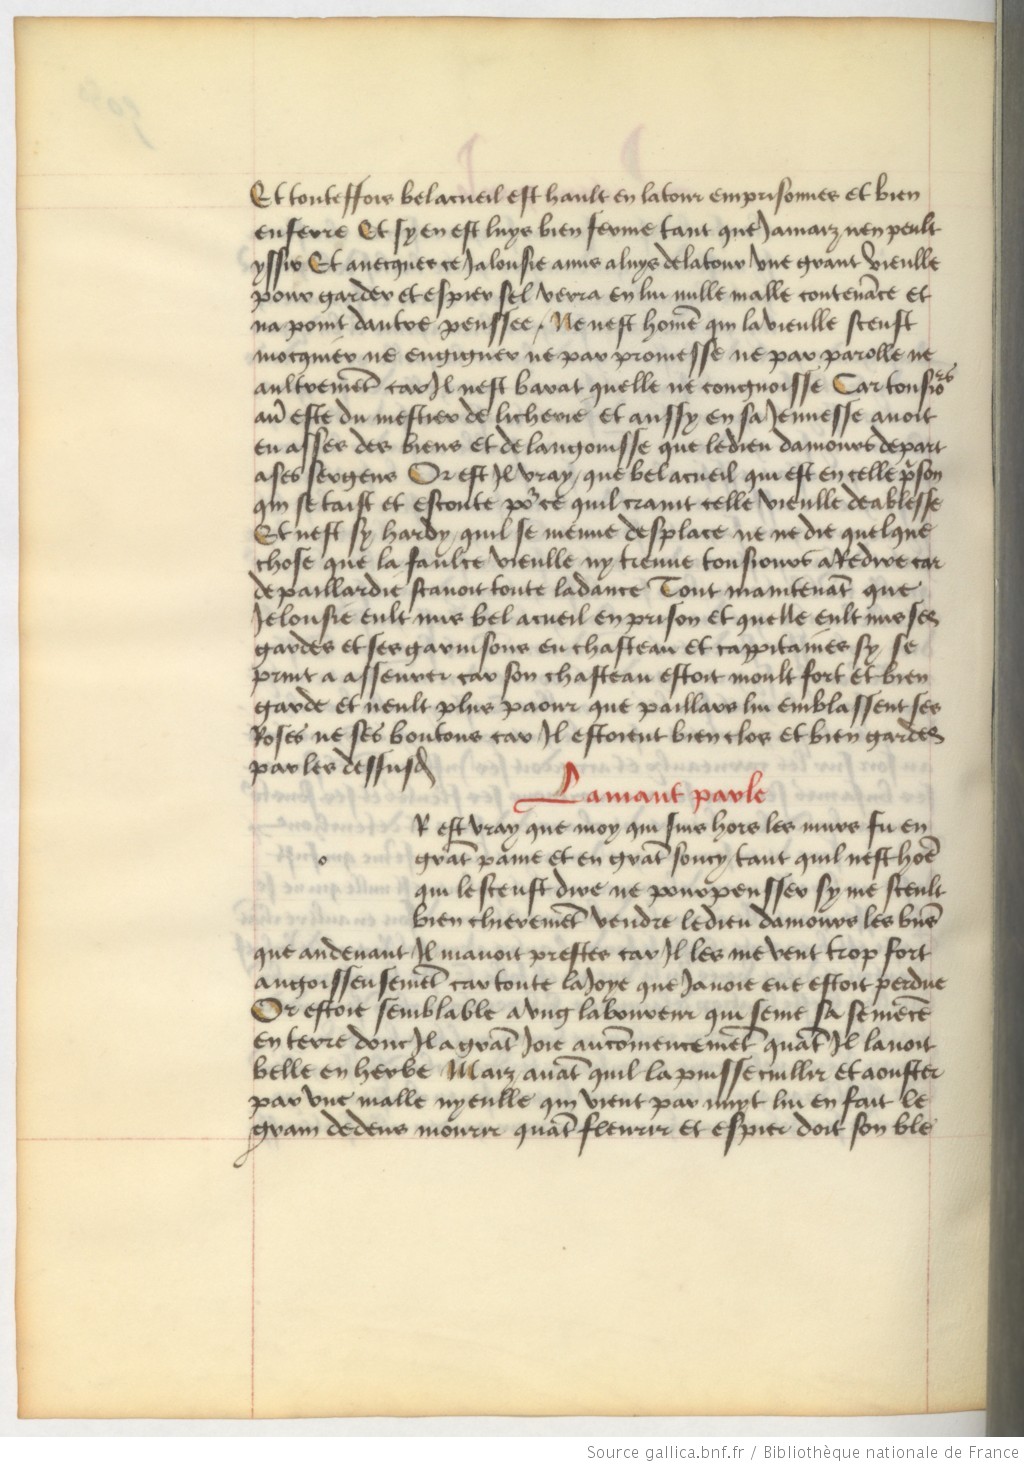 Et touteffois bel acueil est hault en la tour emprisonnes et bien
enferre Et sy en est luys bien ferme tant que Jamaiz nen peult
yssir Et auecques ce Jalousie a mis a luys de la tour vne grant vieulle
pour garder et espier sel verra en lui nulle malle contenāce et
na point dautre penssee. Ne nest homē qui la vieulle sceust
mocquier ne engigner ne par promesse ne par parolle ne
aultremēt car Il nest barat quelle ne congnoisse Car tousiors
auͦ este du mestier de licherie et aussy en sa Jennesse auoit
eu asses des biens et de langouisse que le dieu damours depart
a ses sergens Or est Il vray, que bel acueil qui est en celle pͥson
qui se taist et escoute poͬ ce quil craint celle vieulle deablesse
Et nest sy hardy, quil se meuue desplace ne ne die quelque
chose que la faulce vieulle ny treuue tousiours a Redire car
de paillardie scauoit toute la dance Tout maintenāt que
Jelousie eult mis bel acueil en prison et quelle eult mis ses
gardes et ses garnisons en chasteau et cappitaines sy se
print a asseurer car son chasteau estoit moult fort et bien
garde et neult plus paour que paillars lui emblassent ses
Roses ne ses boutons car Il estoient bien clos et bien gardes
par les dessusd
Lamant parle
o
R est vray que moy qui suis hors les murs fu en
grāt paine et en grāt soucy tant quil nest hoē
qui le sceust dire ne pourpensser sy me sceult
bien chieremēt vendre le dieu damours les biēs
que au deuant Il mauoit prestes car Il les me vent trop fort
angoisseusemēt car toute la Joye que Jauoie eue estoit perdue
Or estoie semblable a vng laboureur qui seme sa semēcē
en terre donc Il a grāt Joie au cōmencemēt quāt Il la voit
belle en herbe Maiz auāt quil la puisse cuillir et aouster
par vne malle nyeulle qui vient par nuyt lui en fait le
grain dedens mourir quāt fleurir et espier doit son ble
Source gallica.bnf.fr / Bibliothèque nationale de France